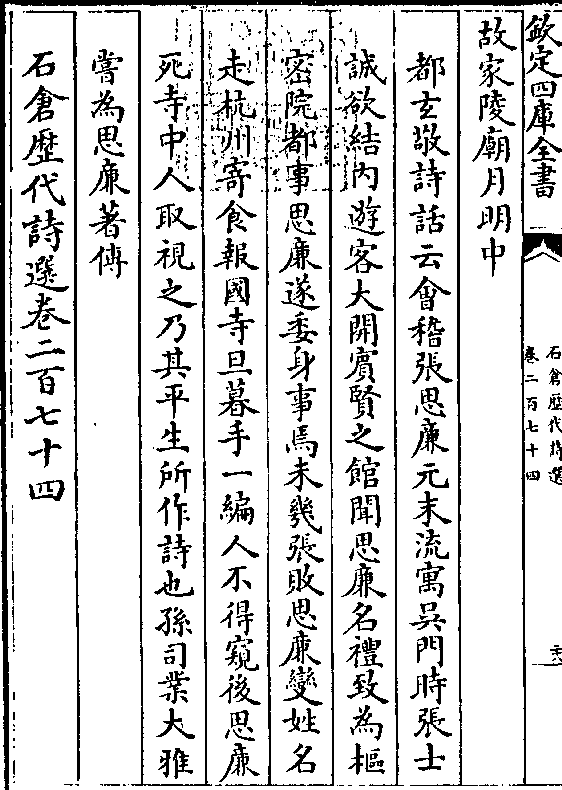 欽定四庫全書
石倉歷代詩選
卷二百七十四
故家陵廟月明中
都玄敬詩話云會稽張思廉元末流寓吳門時張士
誠欲結內遊客大開賓賢之館聞思廉名禮致為樞
密院都事思廉遂委身事焉未幾張敗思廉變姓名
走杭州寄食報國寺旦暮手一編人不得窺後思廉
死寺中人取視之乃其平生所作詩也孫司業大雅
嘗為思廉著傳
石倉歷代詩選卷二百七十四